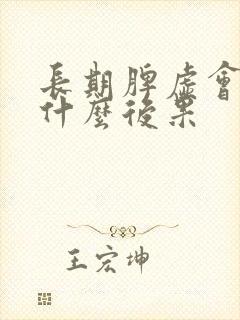 長期脾虛會
什麼後果
王宏坤